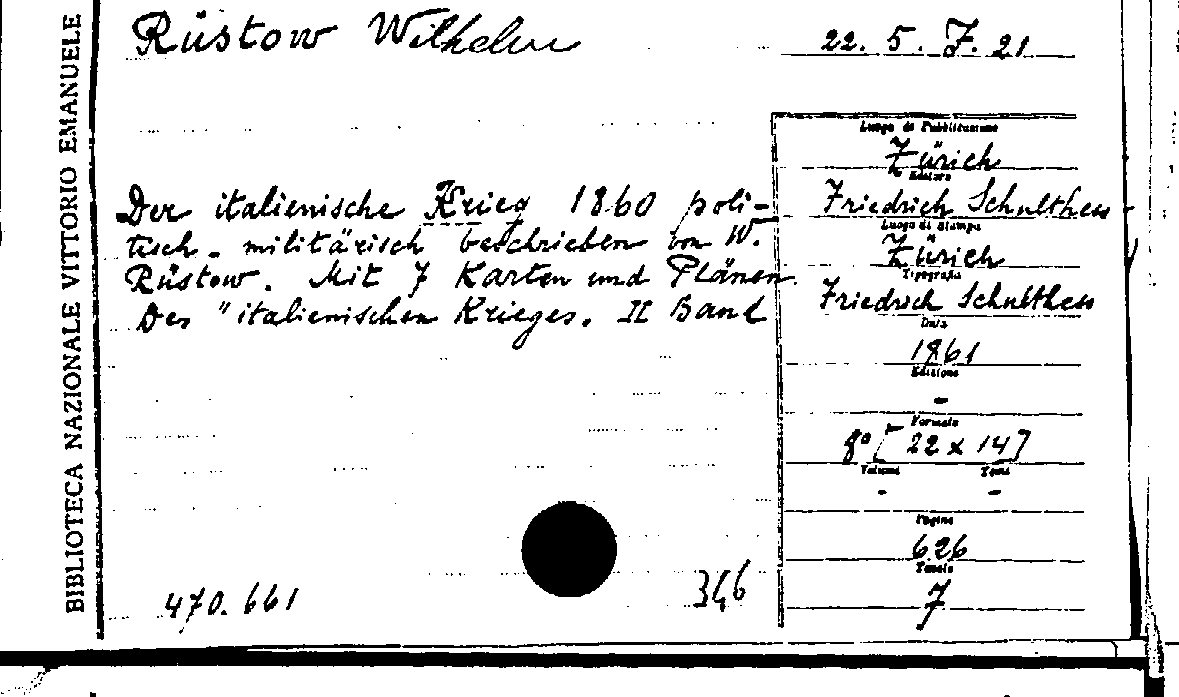 BIBLIOTECA NAZIONALE VITTORIO EMANUELE
Rüstow Wilhelm
22. 5. F. 21
Der italienische Krieg 1860 poli-
tisch - militärisch beschrieben von W.
Rüstow. Mit 7 Karten und Plänen.
Des "italienischen Krieges. II Band
470.661
346
Luogo di Pubblicazione
Zürich
Editore
Friedrich Schulthess
Luogo di Stampa
Zürich
Tipografia
Friedrich Schulthess
Data
1861
Edizione
-
Formato
8° [22 x 14]
Volumi Tomi
- -
Pagine
626
Tavole
7